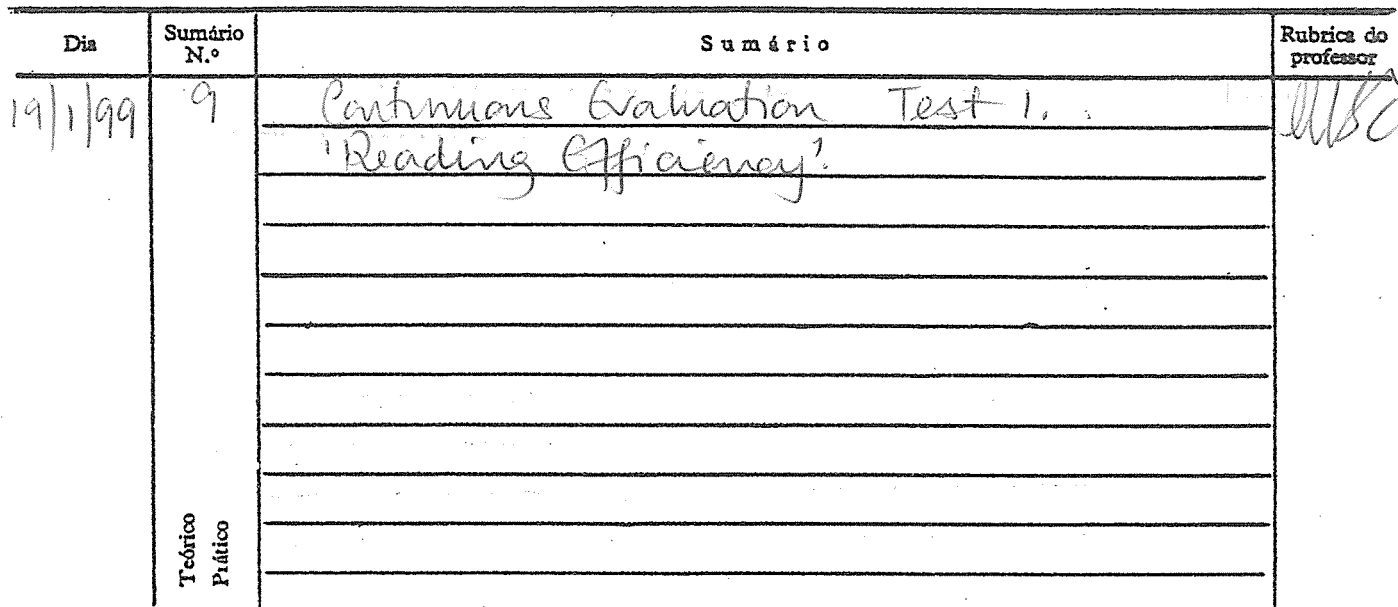 Dia Sumário N.º Sumário Rubrica do professor
19/1/99 9 Continuous Evaluation Test 1.
'Reading Efficiency'.
Teórico
Prático